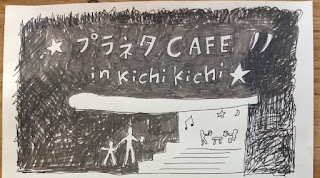 ★プラネタ CAFE
in kichi kichi ★